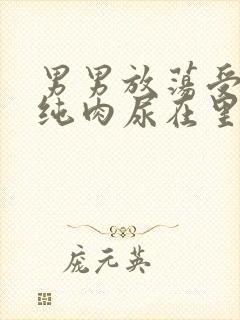 男男放荡受
纯肉尿在里
庞元英